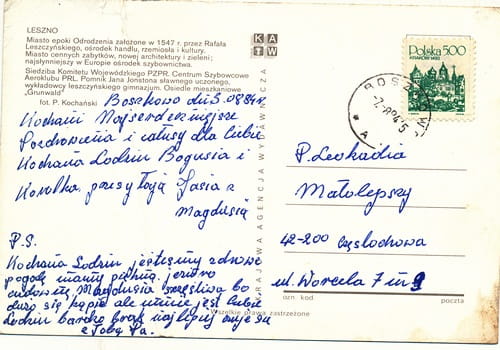 LESZNO
Miasto epoki Odrodzenia założone w 1547 r. przez Rafała
Leszczyńskiego, ośrodek handlu, rzemiosła i kultury.
Miasto cennych zabytków, nowej architektury i zieleni;
najsłynniejszy w Europie ośrodek szybownictwa.
Siedziba Komitetu Wojewódzkiego PZPR. Centrum Szybowcowe
Aeroklubu PRL. Pomnik Jana Jonstona sławnego uczonego,
wykładowcy leszczyńskiego gimnazjum. Osiedle mieszkaniowe
„Grunwald"
fot. P. Kochański
KAW
KRAJOWA AGENCJA WYDAWNICZA
Polska 500
Boszkowo du 5.08.84r.
Kochani Najserdeczniejsze
Pozdrowienia i całusy dla Ciebie
Kochana Lodziu Bogusia i
Karolka przesyłają Jasia z
Magdusią
P.S.
Kochana Lodziu jesteśmy zdrowe
pogodę mamy piękną jezioro
cudowne Magdusia szczęśliwa bo
dużo się kąpie ale mnie jest Ciebie
Lodziu bardzo brak najlepiej czuję się
z Tobą Pa.
P. Leokadia
Małolepszy
42-200 Częstochowa
ul. Worcela 7 m 9
ozn kod
poczta
Wszelkie prawa zastrzeżone